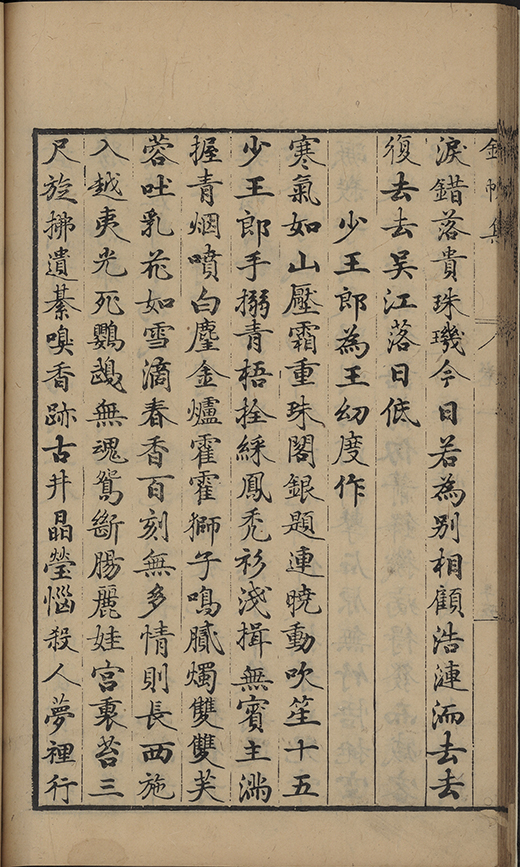 淚錯落貴珠璣今日若為別相顧浩漣洏去去
復去去吳江落日低
少王郎為王幼度作
寒氣如山壓霜重珠閣銀題連曉動吹笙十五
少王郎手搦青梧拴綵鳳禿衫淺揖無賓主滿
握青烟噴白麈金爐霍霍獅子鳴膩燭雙雙芙
蓉吐乳花如雪滴春香百刻無多情則長西施
入越夷光死鸚鵡無魂鴛斷腸麗娃宮裏苔三
尺旋拂遺綦嗅香跡古井晶瑩惱殺人夢裡行